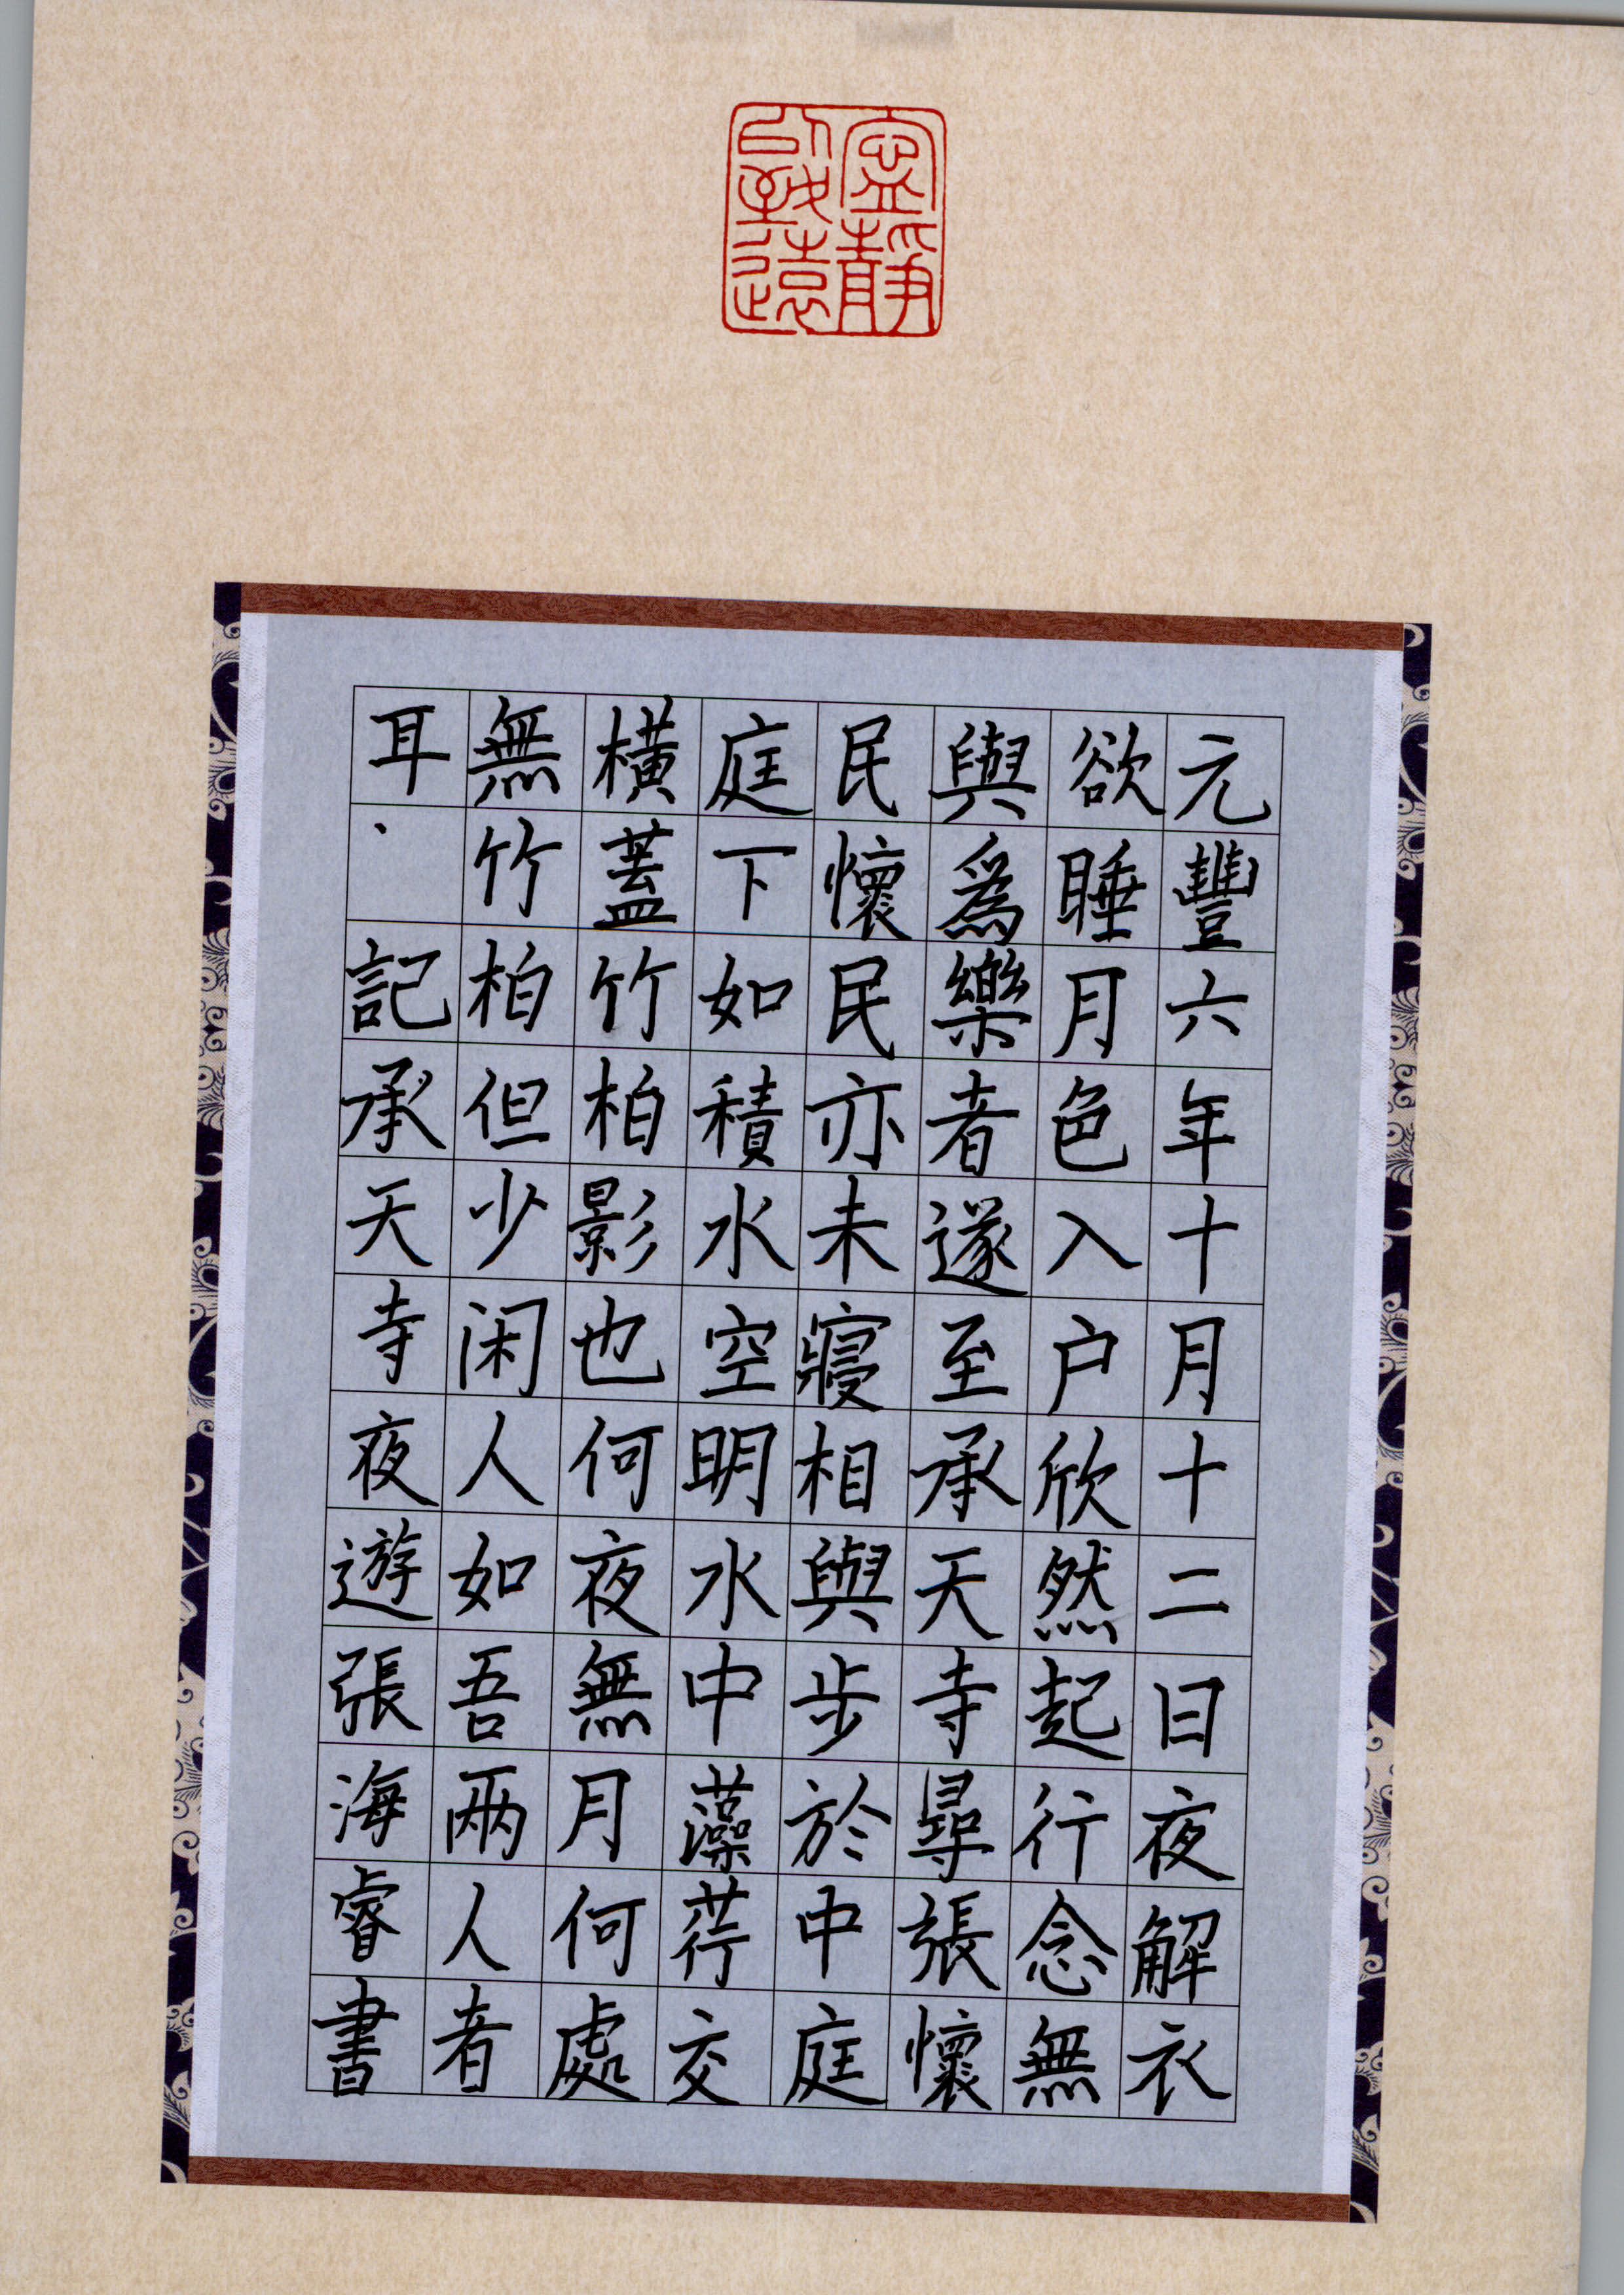 寧靜致遠
元豐六年十月十二日夜解衣
欲睡月色入户欣然起行念無
與爲樂者遂至承天寺尋張懷
民懷民亦未寢相與步於中庭
庭下如積水空明水中藻荇交
橫蓋竹柏影也何夜無月何處
無竹柏但少闲人如吾兩人者
耳、記承天寺夜遊張海睿書